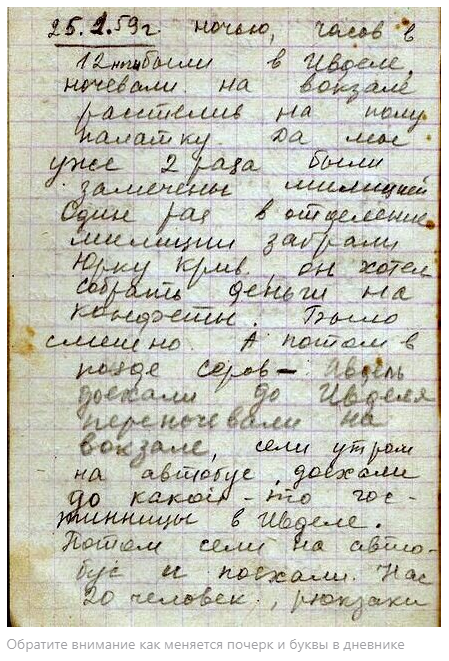 25.1.59г ночью, часов в
12ночи были в Ивделе,
ночевали на вокзале
расстелив на полу
палатку. Да мы
уже 2 раза были
замечены милицией
Один раз в отделение
милиции забрали
Юрку Крив., он хотел
собрать деньги на
конфеты. Было
смешно. А потом в
поезде Серов - Ивдель
доехали до Ивделя
переночевали на
вокзале, сели утром
на автобус, доехали
до какой-то гос-
тинницы в Ивделе.
Потом сели на авто-
бус и поехали. Нас
20 человек, рюкзаки
Обратите внимание как меняется почерк и буквы в дневнике